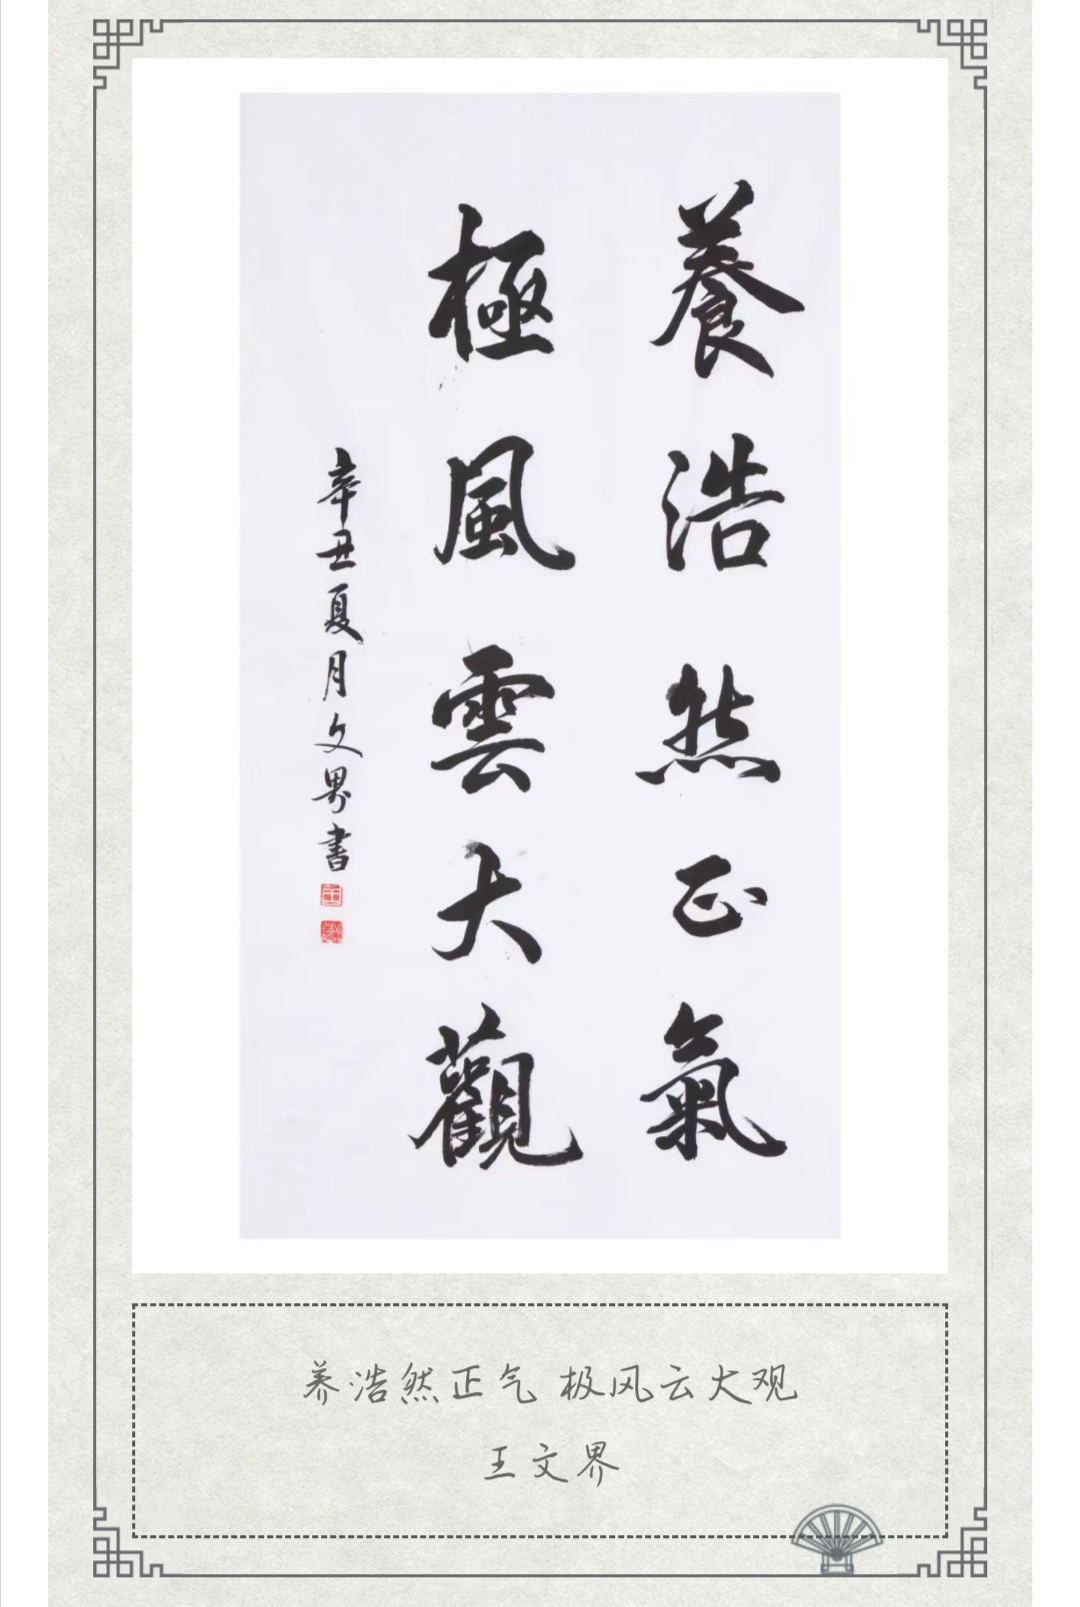 養浩然正氣
極風雲大觀
辛丑夏月文界書
养浩然正气 极风云大观
王文界